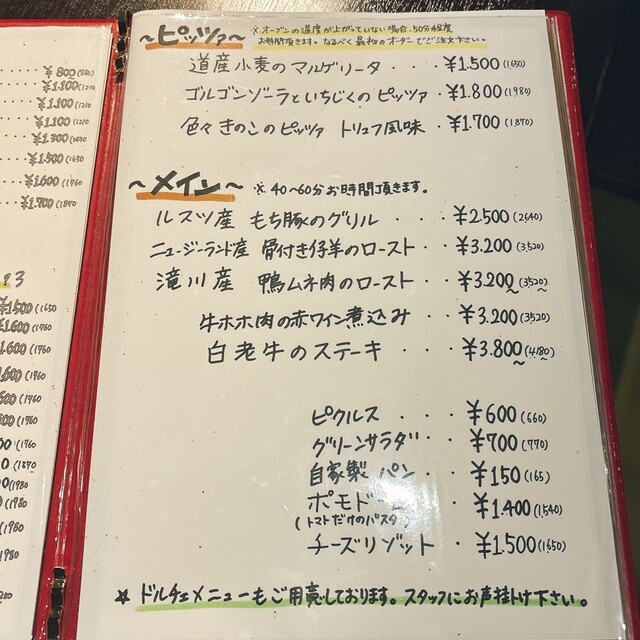 ¥800(880)
¥1.100(1210
¥1.100(1210
¥1.100(1210
¥1.500(1650
¥1.600(1760
¥1.700(1870
~ピッツァ~ ※オーブンの温度が上がっていない場合、50分程度
お時間頂きます。なるべく最初のオーダーでご注文下さい。
道産小麦のマルゲリータ ・ ¥1.500(1650)
ゴルゴンゾーラといちじくのピッツァ・¥1.800(1980)
色々きのこのピッツァ トリュフ風味・¥1.700(1870)
~メイン~ ※40~60分お時間頂きます。
ルスツ産 もち豚のグリル ・・・ ¥2.500(2640)
ニュージーランド産 骨付き仔羊のロースト・・ ¥3.200(3520)
滝川産 鴨ムネ肉のロースト・・ ¥3.200(3520)
牛ホホ肉の赤ワイン煮込み・・ ¥3.200(3520)
白老牛のステーキ ・・・ ¥3.800(4180)
ピクルス ・・・ ¥600(660)
グリーンサラダ・・ ¥700(770)
自家製パン ・・ ¥150(165)
¥1.400(1540)
(トマトだけのパスタ)
チーズリゾット ・ ¥1.500(1650)
☆ ドルチェメニューもご用意しております。スタッフにお声掛け下さい。